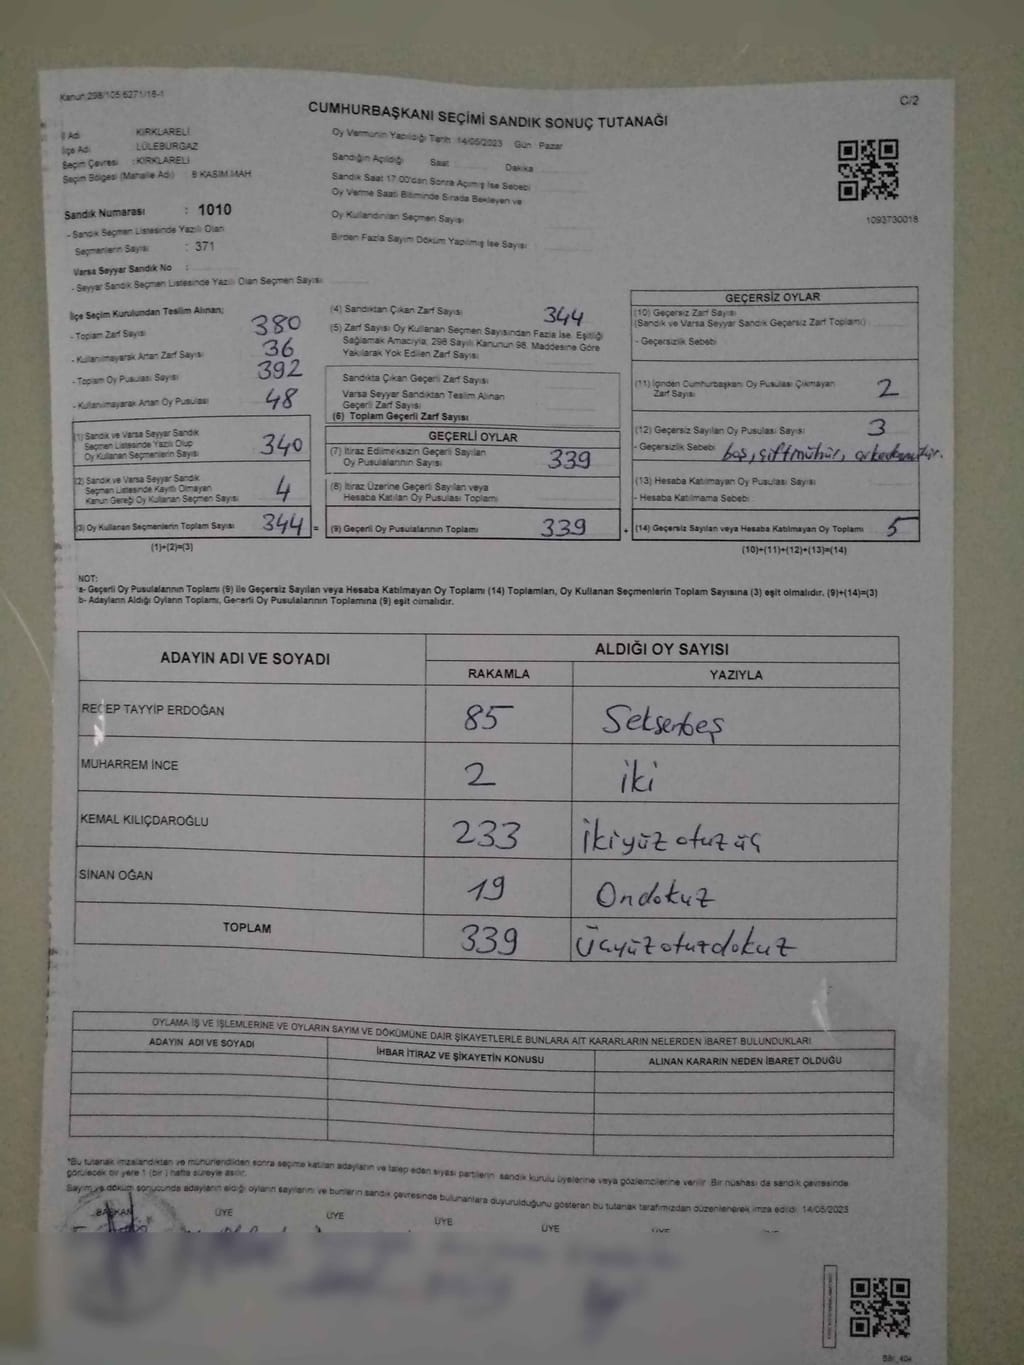 Kanun 298/105 6271/18-1
C/2
CUMHURBAŞKANI SEÇİMİ SANDIK SONUÇ TUTANAĞI
İl Adı KIRKLARELİ
İlçe Adı LÜLEBURGAZ
Seçim Çevresi : KIRKLARELİ
Seçim Bölgesi (Mahalle Adı) : 8 KASIM MAH
Sandık Numarası : 1010
- Sandık Seçmen Listesinde Yazılı Olan
Seçmenlerin Sayısı : 371
Varsa Seyyar Sandık No :
- Seyyar Sandık Seçmen Listesinde Yazılı Olan Seçmen Sayısı
Oy Vermenin Yapıldığı Tarih 14/05/2023 Gün Pazar
Sandığın Açıldığı Saat Dakika
Sandık Saat 17.00'dan Sonra Açılmış İse Sebebi
Oy Verme Saati Bitiminde Sırada Bekleyen ve
Oy Kullandırılan Seçmen Sayısı
Birden Fazla Sayım Döküm Yapılmış İse Sayısı
1093730018
İlçe Seçim Kurulundan Teslim Alınan;
- Toplam Zarf Sayısı 380
- Kullanılmayarak Artan Zarf Sayısı 36
- Toplam Oy Pusulası Sayısı 392
- Kullanılmayarak Artan Oy Pusulası 48
(1) Sandık ve Varsa Seyyar Sandık
Seçmen Listesinde Yazılı Olup
Oy Kullanan Seçmenlerin Sayısı 340
(2) Sandık ve Varsa Seyyar Sandık
Seçmen Listesinde Kayıtlı Olmayan
Kanun Gereği Oy Kullanan Seçmen Sayısı 4
(3) Oy Kullanan Seçmenlerin Toplam Sayısı 344 =
(1)+(2)=(3)
(4) Sandıktan Çıkan Zarf Sayısı 344
(5) Zarf Sayısı Oy Kullanan Seçmen Sayısından Fazla İse, Eşitliği
Sağlamak Amacıyla, 298 Sayılı Kanunun 98. Maddesine Göre
Yakılarak Yok Edilen Zarf Sayısı
Sandıkta Çıkan Geçerli Zarf Sayısı
Varsa Seyyar Sandıktan Teslim Alınan
Geçerli Zarf Sayısı
(6) Toplam Geçerli Zarf Sayısı
GEÇERLİ OYLAR
(7) İtiraz Edilmeksizin Geçerli Sayılan
Oy Pusulalarının Sayısı 339
(8) İtiraz Üzerine Geçerli Sayılan veya
Hesaba Katılan Oy Pusulası Toplamı
(9) Geçerli Oy Pusulalarının Toplamı 339 +
GEÇERSİZ OYLAR
(10) Geçersiz Zarf Sayısı
(Sandık ve Varsa Seyyar Sandık Geçersiz Zarf Toplamı)
- Geçersizlik Sebebi
(11) İçinden Cumhurbaşkanı Oy Pusulası Çıkmayan
Zarf Sayısı 2
(12) Geçersiz Sayılan Oy Pusulası Sayısı 3
- Geçersizlik Sebebi boş, çift mühür,
(13) Hesaba Katılmayan Oy Pusulası Sayısı
- Hesaba Katılmama Sebebi
(14) Geçersiz Sayılan veya Hesaba Katılmayan Oy Toplamı 5
(10)+(11)+(12)+(13)=(14)
NOT:
a- Geçerli Oy Pusulalarının Toplamı (9) ile Geçersiz Sayılan veya Hesaba Katılmayan Oy Toplamı (14) Toplamları, Oy Kullanan Seçmenlerin Toplam Sayısına (3) eşit olmalıdır. (9)+(14)=(3)
b- Adayların Aldığı Oyların Toplamı, Geçerli Oy Pusulalarının Toplamına (9) eşit olmalıdır.
ADAYIN ADI VE SOYADI
ALDIĞI OY SAYISI
RAKAMLA YAZIYLA
RECEP TAYYİP ERDOĞAN 85 Seksenbeş
MUHARREM İNCE 2 iki
KEMAL KILIÇDAROĞLU 233 İkiyüz otuz üç
SİNAN OĞAN 19 Ondokuz
TOPLAM 339 Üçyüzotuzdokuz
OYLAMA İŞ VE İŞLEMLERİNE VE OYLARIN SAYIM VE DÖKÜMÜNE DAİR ŞİKAYETLERLE BUNLARA AİT KARARLARIN NELERDEN İBARET BULUNDUKLARI
ADAYIN ADI VE SOYADI İHBAR İTİRAZ VE ŞİKAYETİN KONUSU ALINAN KARARIN NEDEN İBARET OLDUĞU
*Bu tutanak imzalandıktan ve mühürlendikten sonra seçime katılan adayların ve talep eden siyasi partilerin sandık kurulu üyelerine veya gözlemcilerine verilir. Bir nüshası da sandık çevresinde
görülecek bir yere 1 (bir) hafta süreyle asılır.
Sayım ve döküm sonucunda adayların aldığı oyların sayılarını ve bunların sandık çevresinde bulunanlara duyurulduğunu gösteren bu tutanak tarafımızdan düzenlenerek imza edildi. 14/05/2023
BAŞKAN ÜYE ÜYE ÜYE ÜYE ÜYE